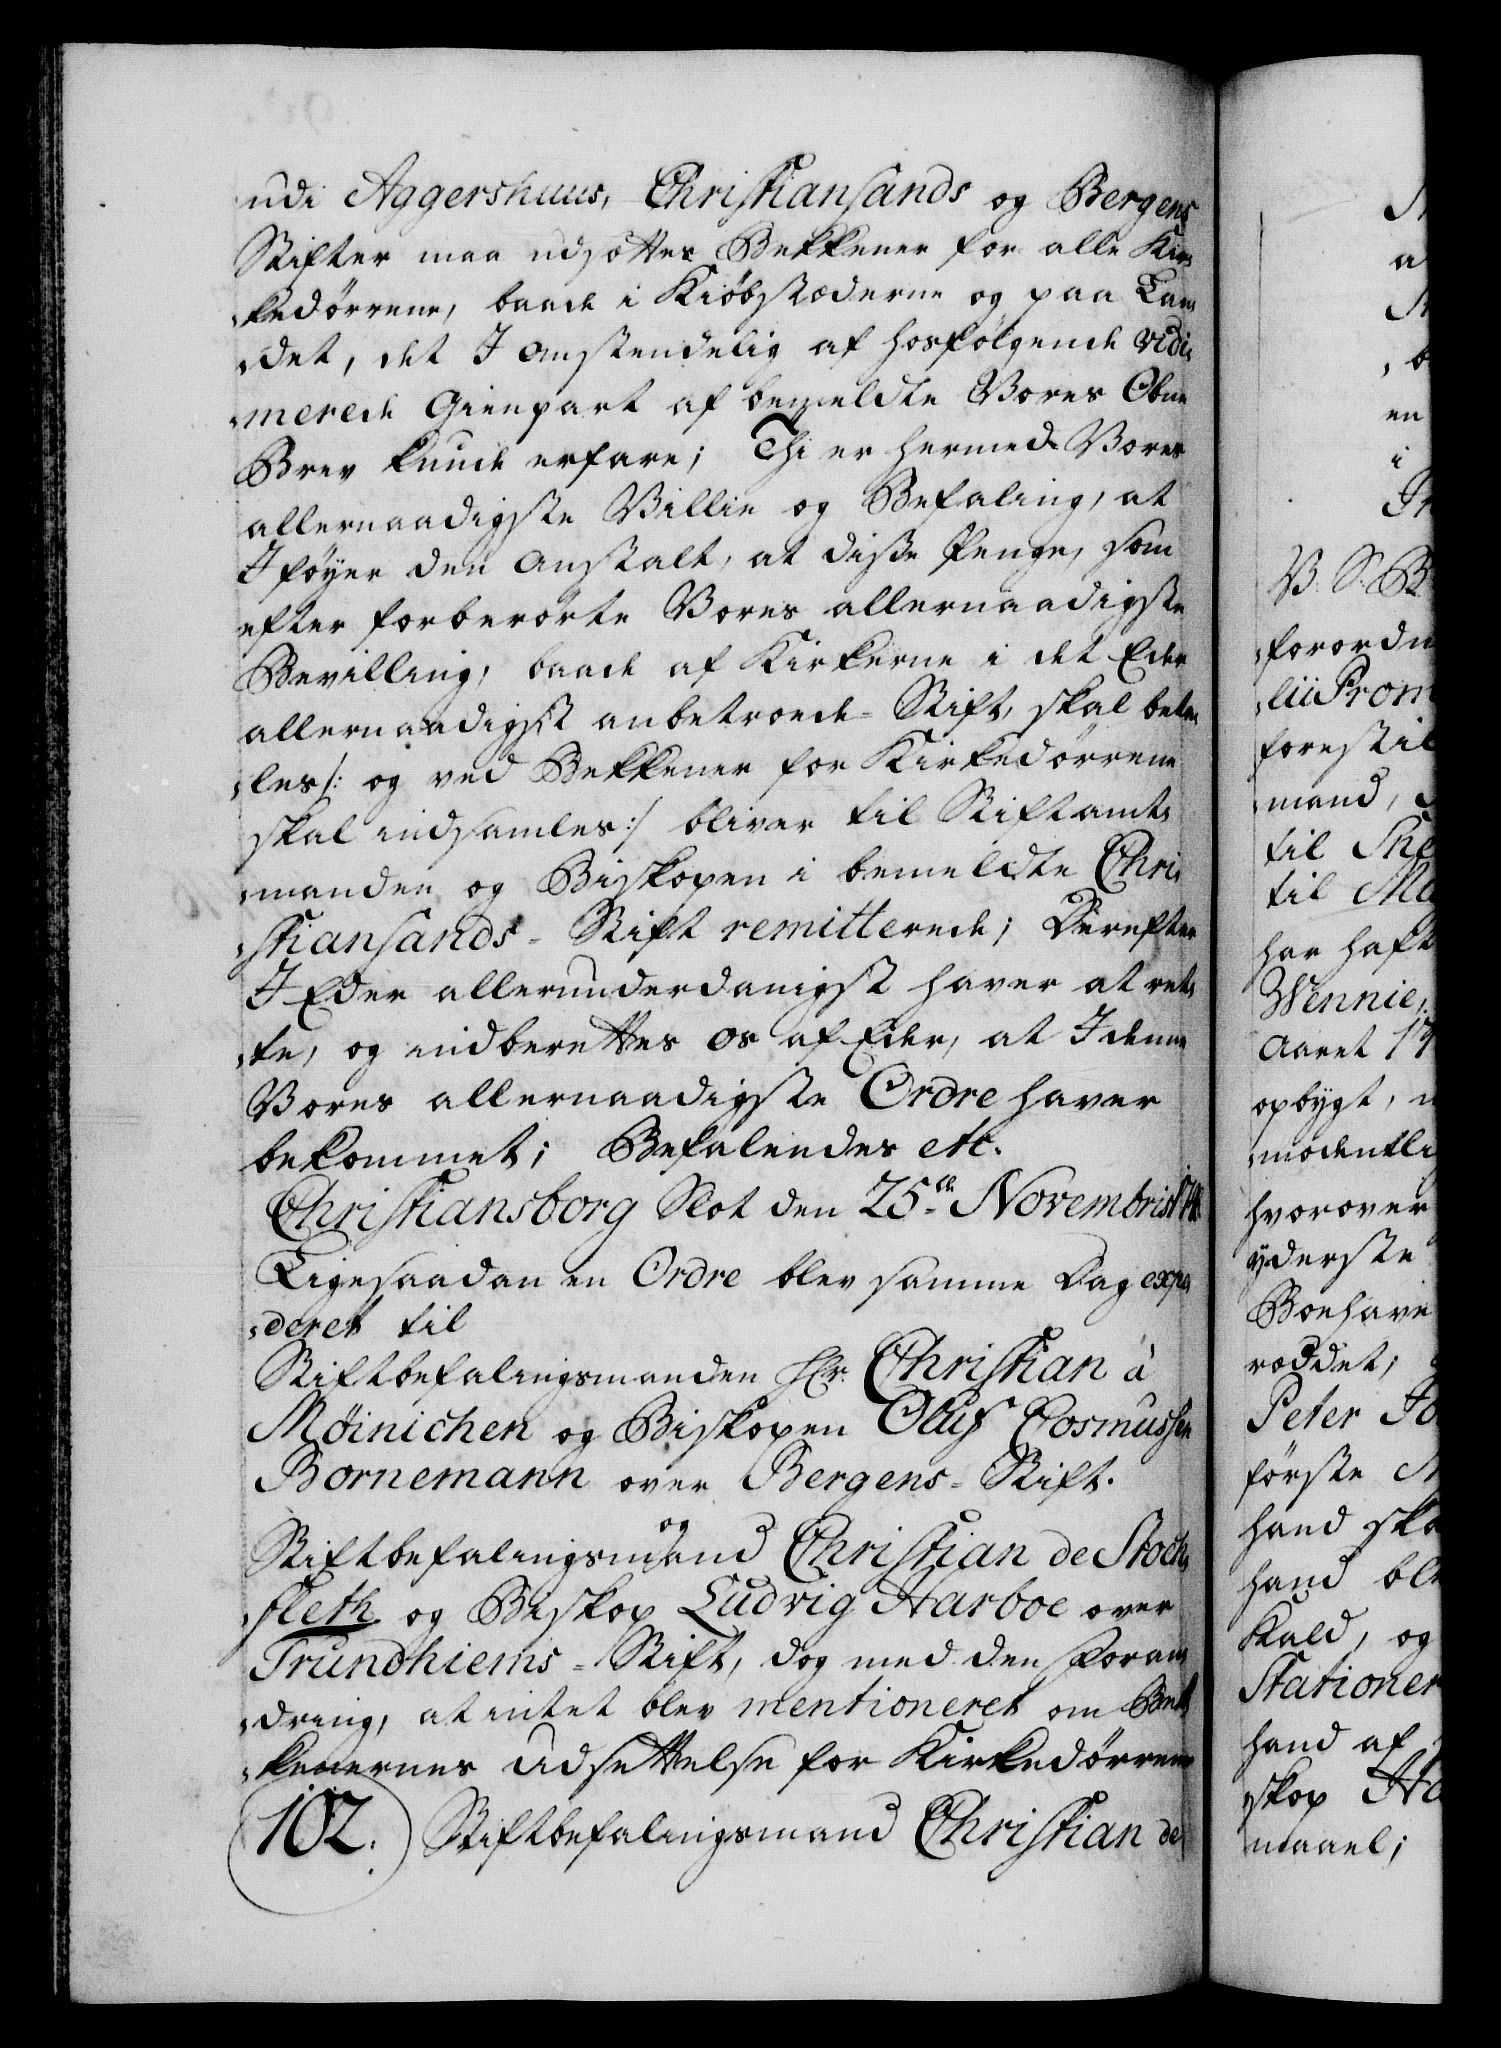 udi Aggershuus, Christiansands og Bergens
Stifter maa udsættes Bekkener for alle Kir-
kedørrene, baade i Kiøbstæderne og paa Lan-
det, det I omstendelig af hosfølgende vidi-
merede Gienpart af bemeldte Vores Obne
Brev kunde erfare; Thi er hermed Vores
allernaadigste Villie og Befaling, at
I føyer den Anstalt, at diße Penge, som
efter forberørte Vores allernaadigste
Bevilling, baade af Kirkerne i det Eder
allernaadigst anbetroede Stift, skal beta-
les /: og ved Bekkener for Kirkedørrene
skal indsamles :/ bliver til Stiftamt-
manden og Biskopen i bemeldte Chri-
stiansands-Stift remitterede; Derefter
I Eder allerunderdanigst haver at ret-
te, og indberettes os af Eder, at I denne
Vores allernaadigste Ordre haver
bekommet; Befalendes etc.
Christiansborg Slot den 25de Novembris
Ligesaadan en Ordre blev samme Dag expe-
deret til
Stiftbefalingsmanden Hr. Christian à
Møinichen og Biskopen Oluf Cosmussen
Bornemann over Bergens-Stift.
og
Stiftbefalingsmand Christian de Stoch-
fleth og Biskop Ludvig Harboe over
Trundhiems-Stift, dog med den Foran-
dring, at intet blev mentioneret om Bek-
kenernes Udsettelse for Kirkedørrene
102. Stiftbefalingsmand Christian de
a
en
i
V. S. B
forordn
lii Prom
forestil
mand,
til
til
har haft
Wennie,
Aaret 17
opbygt,
modentlig
hvorover
yderste
Boehave
røddet;
Peter
første
hand ska
hand ble
Kald, og
Stationer
hand af
skop Ha
maael;